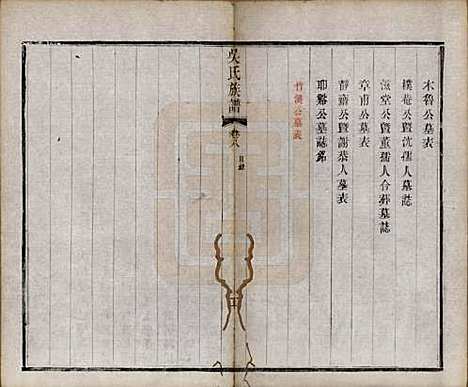 木魯公墓表
樸菴公暨沈孺人墓誌
滋堂公暨董孺人合葬墓誌
章甫公墓表
靜齋公暨謝恭人墓表
耶谿公墓誌銘
竹溪公墓表
吳氏族譜
卷八
目錄